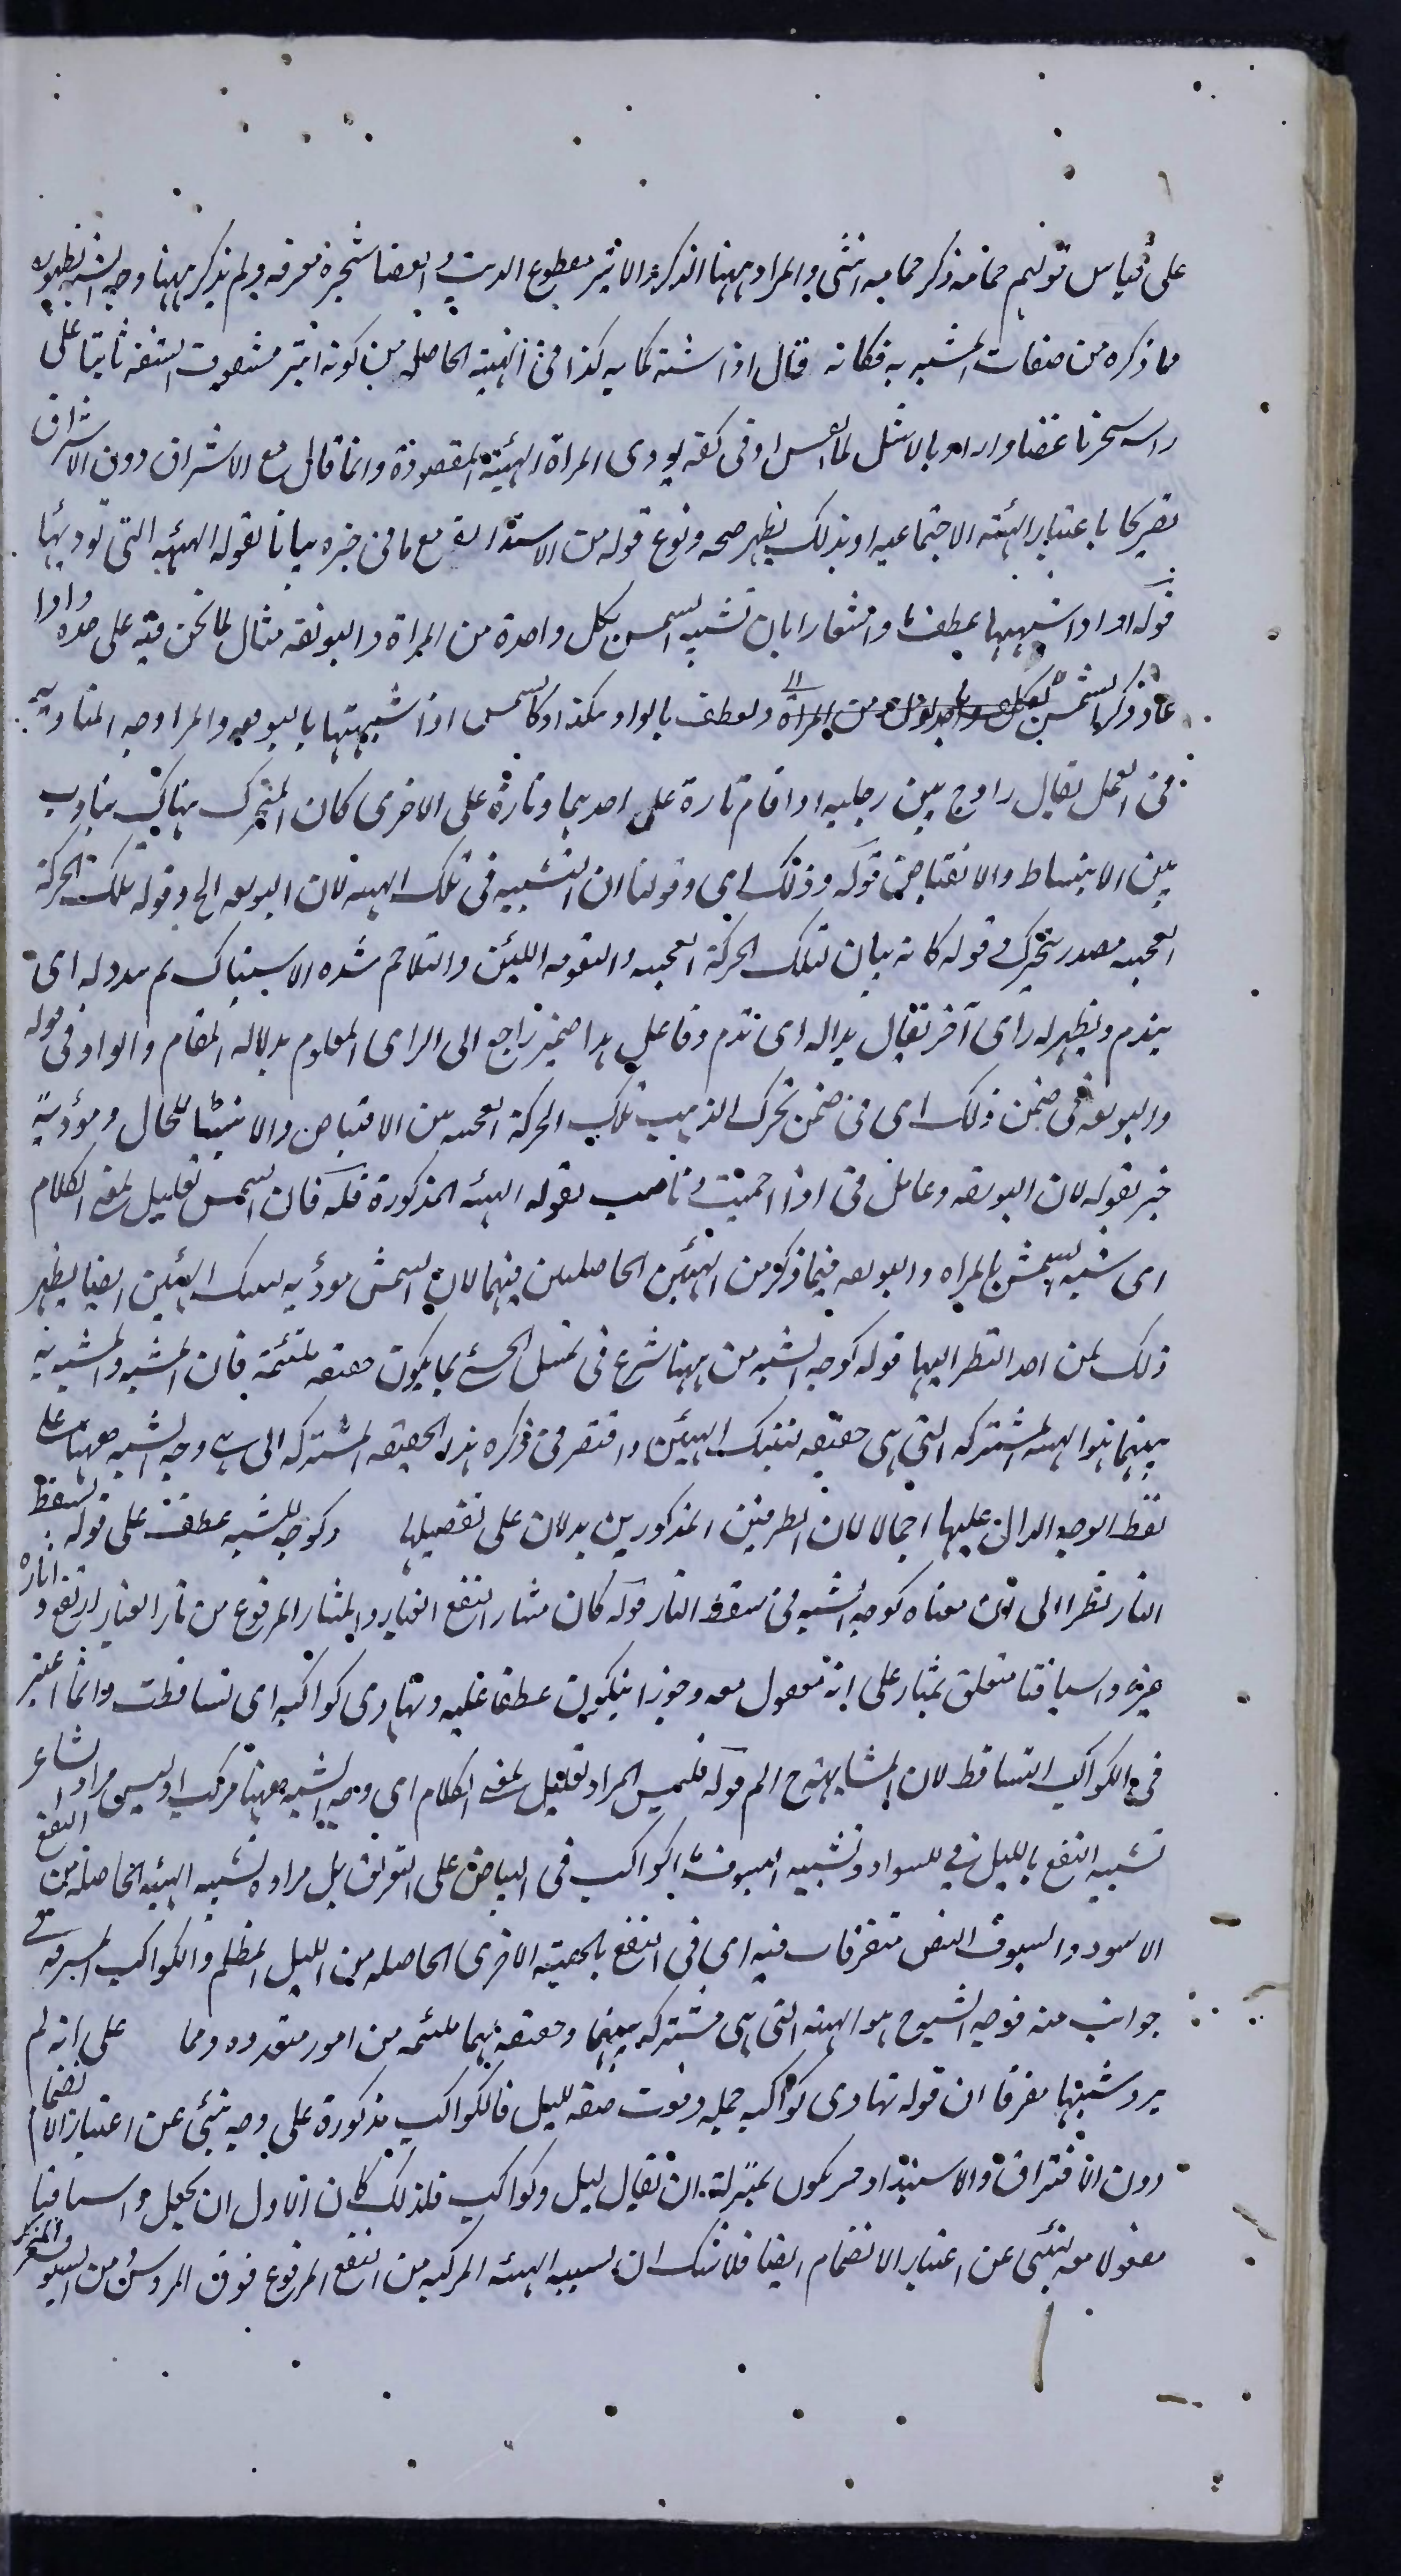 على قياس قولهم حمامة ذكر حمامة انثى والمراد ههنا الذكر والابتر مقطوع الذنب والغضا شجرة معرفه ولم يذكر ههنا وجه الشبه لظهوره
مما ذكره من صفات المشبه به فكانه قال اذا اشبه كما به كذا فى الهيئة الحاصلة من كونه ابتر مشقوق الشفه ثابتا على
راسه شجرتا غضا واراد بالاشل لما الشمس او فى كفه يودى المراة الهيئة المقصودة وانما قال مع الاشراق دون الاشراق
تصريحا باعتبار الهيئه الاجتماعيه او بذلك يظهر صحه وقوع قوله من الاستدارة مع ما فى خبره بيانا لقوله الهيئه التى تؤديها
قوله او اذا شبهها بعطف واشعارا بان تشبيه الشمس بكل واحدة من المراة والبوتقه مثال لما نحن فيه على حده واذا
عاد ذكر الشمس ولعطف بالواو هكذا وكالشمس اذا شبهتها بالبوتقه والمراوحه المناوبه
فى العمل يقال راوح بين رجليه اذا قام تارة على احديهما وتارة على الاخرى كان المتحرك هناك يناوب
بين الانبساط والانقباض قوله وذلك اى وقولنا ان التشبيه فى تلك الهيئه لان البوتقه الخ وقوله تلك الحركة
العجيبه مصدر يتحرك وقوله كانه بيان لتلك الحركة العجيبه والنعومه اللين والتلاحم شده الاستمساك ثم يبدو له اى
يندم ويظهر له راى آخر يقال بداله اى ندم وفاعل بدا ضمير راجع الى الراى المعلوم بدلاله المقام والواو فى قوله
والبوتقه فى ضمن ذلك اى فى ضمن تحرك الذهب تلك الحركة العجيبه بين الانقباض والانبساط للحال ومؤدية
خبر لقوله لان البوتقه وعامل فى اذا احميت وناصب لقوله الهيئه المذكورة قوله فان الشمس تعليل لمعنى الكلام
اى شبه الشمس بالمراه والبوتقه فيما ذكر من الهيئتين الحاصلتين فيهما لان الشمس مؤديه لتلك الهيئتين ايضا يظهر
ذلك لمن احد النظر اليها قوله كوجه الشبه من ههنا شرع فى تمثيل الحسى بما يكون حقيقه ملتئمة فان المشبه والمشبه به
بينهما هو الهيئه المشتركه التى هى حقيقه لتينك الهيئتين واقتصر فى ذكره هذه الحقيقه المشتركه التى هى وجه الشبه ههنا على
لفظ الوجه الدال عليها اجمالا لان الطرفين المذكورين يدلان على تفصيلها وكوجه الشبه عطف على قوله بسقط
النار نظرا الى ان معناه كوجه الشبه فى سقط النار قوله كان مثار النقع الغبار والمثار المرفوع من ثار الغبار ارتفع واثاره
غيره واسيافنا متعلق بمثار على انه مفعول معه وجوز ان يكون عطفا عليه وتهاوى كواكبه اى تساقطت وانما اعتبر
فى الكواكب التساقط لان المشابهة ح اتم قوله فليس المراد تعليل لمعنى الكلام اى وجه الشبه ههنا مركب اذ ليس مراد الشاعر
تشبيه النقع بالليل فى السواد وتشبيه السيوف بالكواكب فى البياض على التفريق بل مراده تشبيه الهيئه الحاصله من النقع
الاسود والسيوف البيض متفرقات فيه اى فى النقع بالهيئة الاخرى الحاصله من الليل المظلم والكواكب المشرقه فى
جوانب منه فوجه الشبه ح هو الهيئه التى هى مشتركه بينهما وحقيقه بهما ملتئمه من امور متعدده ومما على انه لم
يرد تشبيها مفرقا ان قوله تهاوى كواكبه جمله وقعت صفه لليل فالكواكب مذكورة على وجه ينبئى عن اعتبار الانضمام
دون الافتراق والاستبداد يكون بمنزلة ان يقال ليل وكواكب فلذلك كان الاول ان يجعل واسيافنا
مفعولا معه ينبئى عن اعتبار الانضمام ايضا فلا شك ان تشبيه الهيئه المركبه من النقع المرفوع فوق الروس ومن السيوف